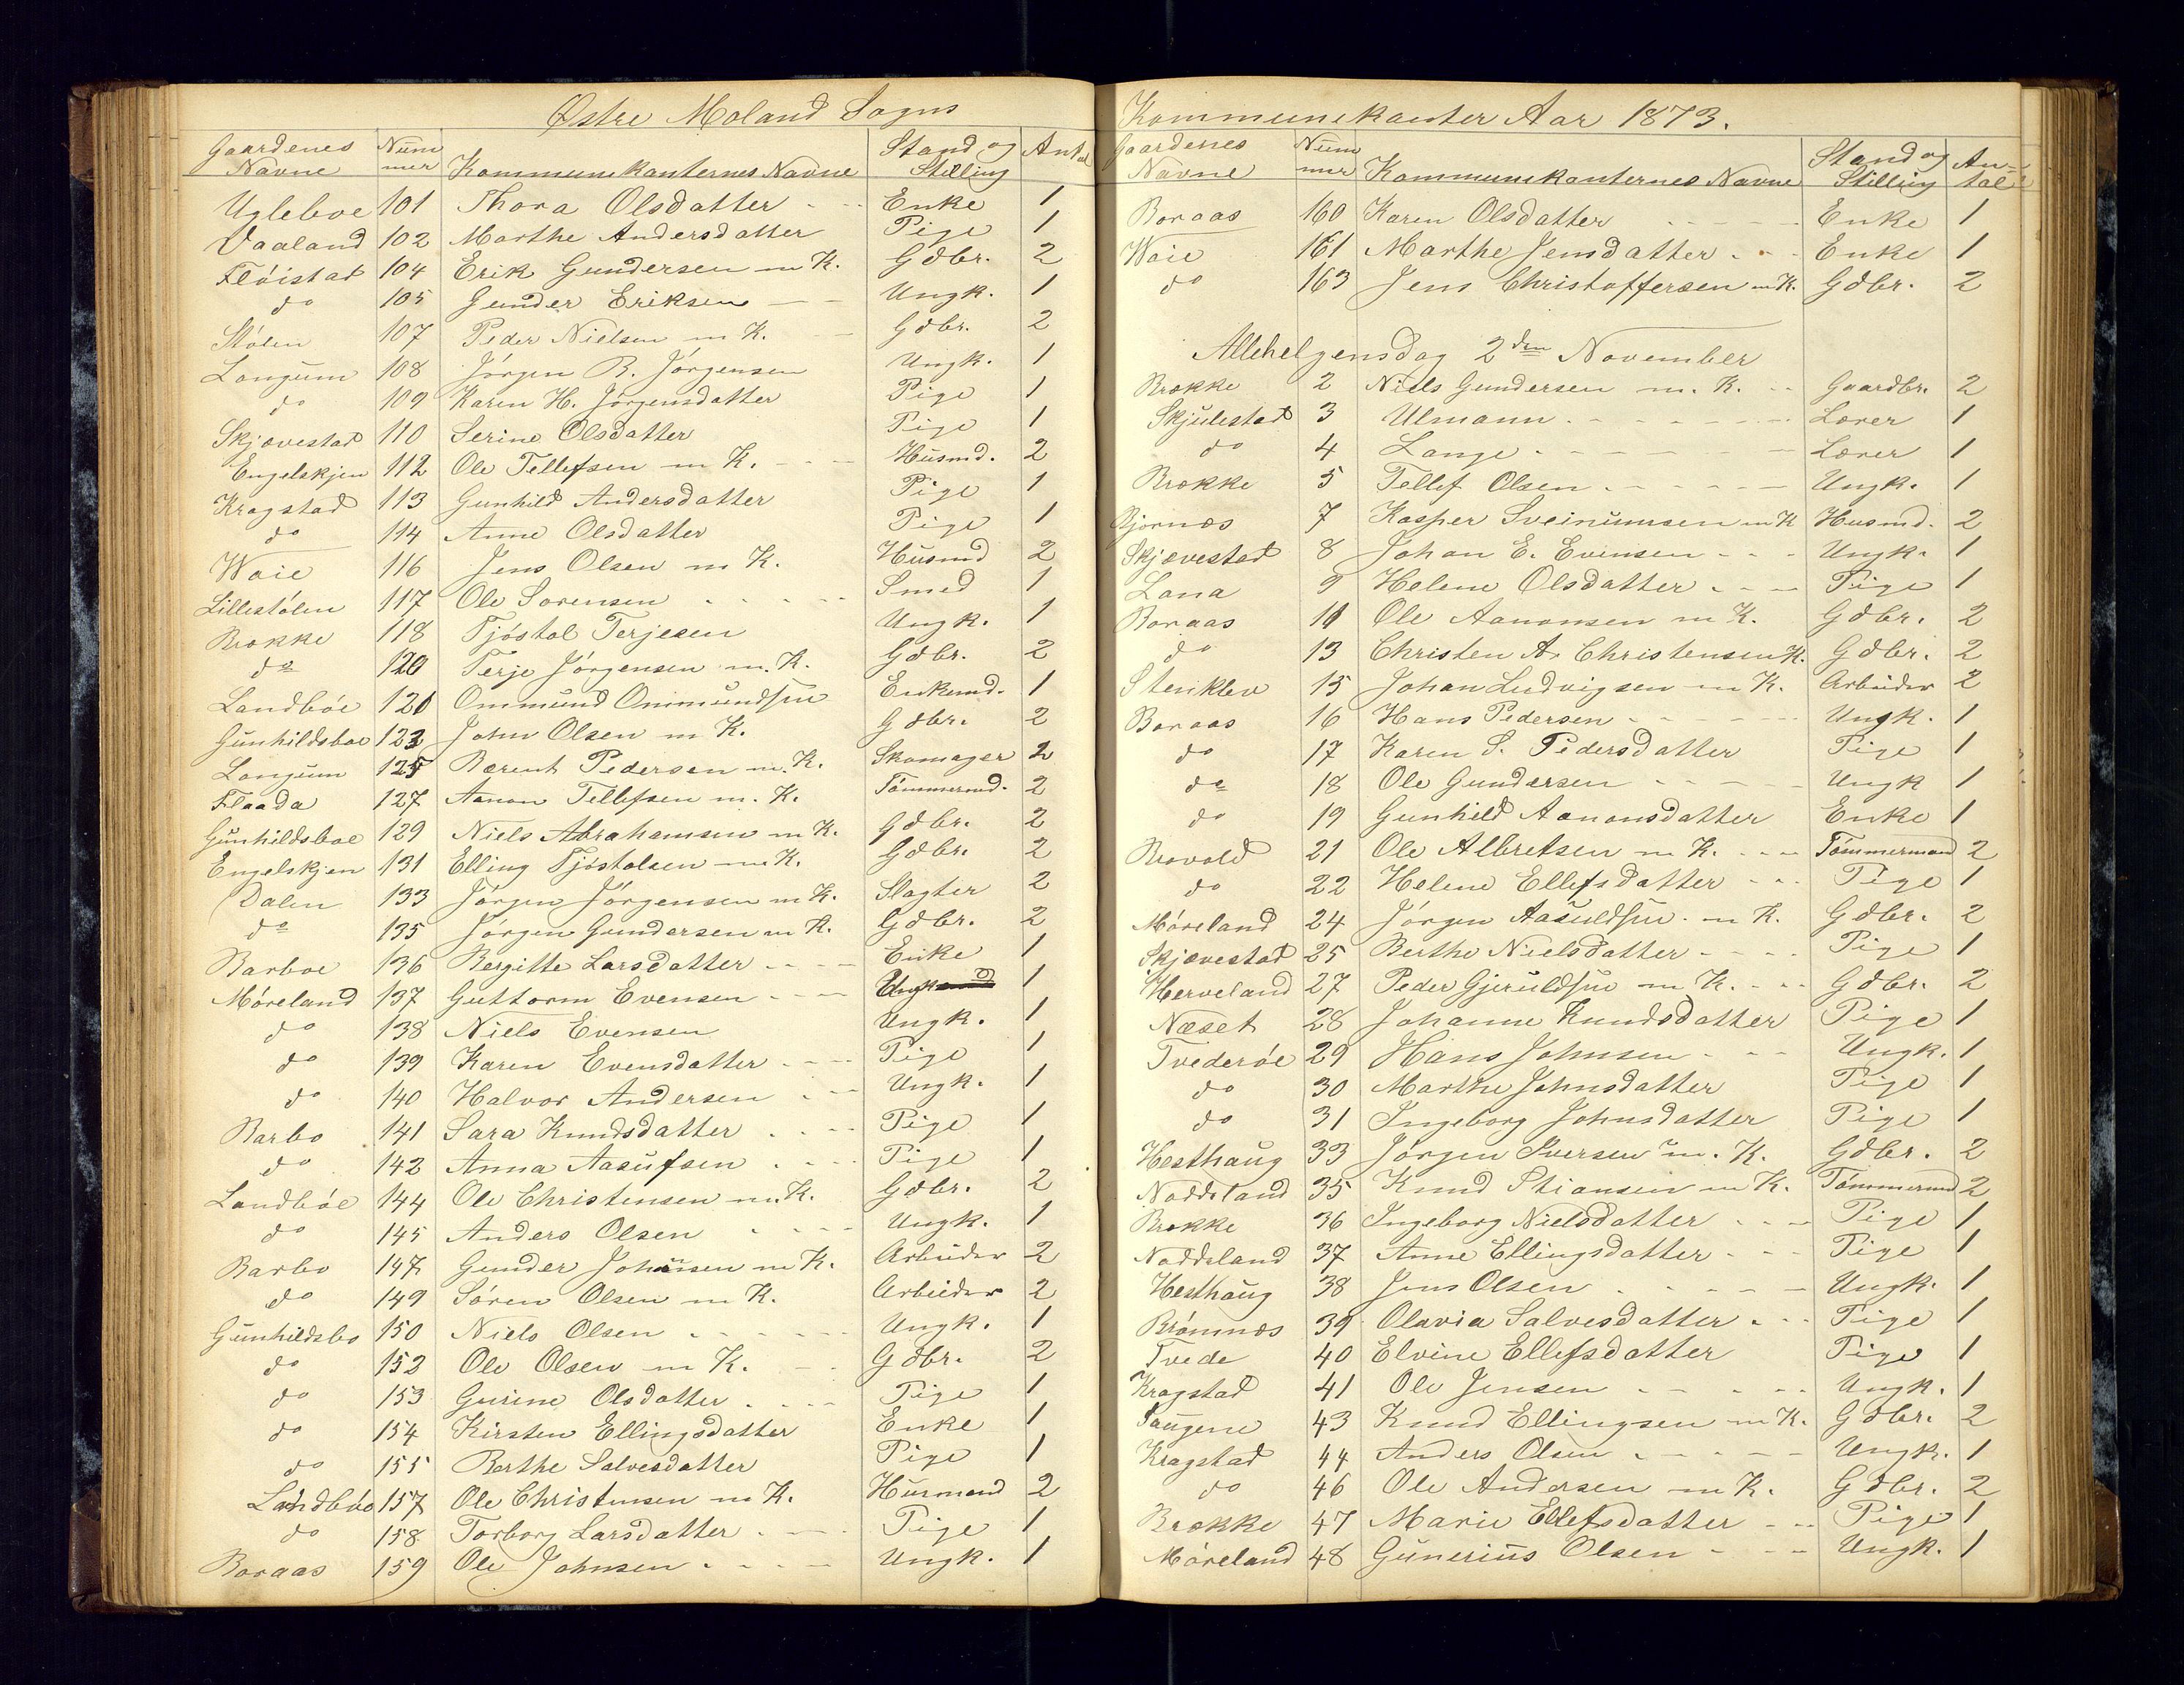 Østre Moland Sogns
Gaardenes Navne Num mer Kommunikanternes Navne Stand og Stilling Antal
Ugleboe 101 Thora Olsdatter - - Enke 1
Vaaland 102 Marthe Andersdatter Pige 1
Fløistad 104 Erik Gundersen m K. Gdbr. 2
do 105 Gunder Eriksen - - Ungk. 1
Stølen 107 Peder Nielsen m K. - Gdbr. 2
Longum 108 Jørgen B. Jørgensen Ungk. 1
do 109 Karen H. Jørgensdatter Pige 1
Skjævestad 110 Serine Olsdatter Pige 1
Engelskjen 112 Ole Tellefsen m K. - - Husmd. 2
Kragstad 113 Gunhild Andersdatter Pige 1
do 114 Anne Olsdatter Pige 1
Waie 116 Jens Olsen m K. Husmd 2
Lillestølen 117 Ole Sørensen - - - - Smed 1
Brække 118 Tjøstol Terjesen Ungk. 1
do 120 Terje Jørgensen m. K. Gdbr. 2
Landbøe 121 Ommund Ommundsen Enkemd. 1
Gunhildsboe 123 John Olsen m K. Gdbr. 2
Longum 125 Berent Pedersen m. K. Skomager 2
Flaada 127 Aanon Tellefsen m. K. Tømmermd. 2
Gunhildsboe 129 Niels Abrahamsen m K. Gdbr. 2
Engelskjen 131 Elling Tjøstolsen m K. Gdbr. 2
Dalen 133 Jørgen Jørgensen m K. Slagter 2
do 135 Jørgen Gundersen m K. Gdbr. 2
Barboe 136 Bergitte Larsdatter - - - Enke 1
Møreland 137 Guttorm Evensen - - - Ungk 1
do 138 Niels Evensen Ungk. 1
do 139 Karen Evensdatter - - Pige 1
do 140 Halvor Andersen - - Ungk. 1
Barbo 141 Sara Knudsdatter - - - Pige 1
do 142 Anna Aasufsen - - - Pige 1
Landbøe 144 Ole Christensen m. K. Gdbr. 2
do 145 Anders Olsen - - - Ungk. 1
Barbo 147 Gunder Johnsen m K. Arbeider 2
do 149 Søren Olsen m K. Arbeider 2
Gunhildsbo 150 Niels Olsen - - - - - Ungk. 1
do 152 Ole Olsen m K. - - Gdbr. 2
do 153 Gurine Olsdatter - - - - Pige 1
do 154 Kirsten Ellingsdatter Enke 1
do 155 Berthe Salvesdatter Pige 1
Landbøe 157 Ole Christensen m K. Husmand 2
do 158 Torborg Larsdatter - - - Pige 1
Boraas 159 Ole Johnsen - - - - Ungk. 1
Kommunikanter Aar 1873.
Gaardenes Navne Num mer Kommunikanternes Navne Stand og Stilling An- tal
Boraas 160 Karen Olsdatter - - - - Enke 1
Waie 161 Marthe Jensdatter - - - Enke 1
do 163 Jens Christoffersen m K. Gdbr. 2
Allehelgensdag 2den November
Brække 2 Niels Gundersen m. K. - - Gaardbr. 2
Skjulestad 3 Ulmann - - - - - - Lærer 1
do 4 Lange - - - - - - Lærer 1
Brække 5 Tellef Olsen - - - - - Ungk. 1
Bjornæs 7 Kasper Sveinumsen m K Husmd. 2
Skjævestad 8 Johan E. Evensen - - - Ungk. 1
Lana 9 Helene Olsdatter - - - Pige 1
Boraas 11 Ole Aanonsen m K. Gdbr. 2
do 13 Christen A. Christensen K. Gdbr. 2
Stenklev 15 Johan Ludvigsen m K. Arbeider 2
Boraas 16 Hans Pedersen - - - - - Ungk. 1
do 17 Karen S. Pedersdatter Pige 1
do 18 Ole Gundersen - - - - Ungk 1
do 19 Gunhild Aanonsdatter Enke 1
Brovold 21 Ole Albretsen m K. - - - Tømmermand 2
do 22 Helene Ellefsdatter - - - Pige 1
Møreland 24 Jørgen Aasuldsen m K. Gdbr. 2
Skjævestad 25 Berthe Nielsdatter - - - - Pige 1
Herveland 27 Peder Gjeruldsen m K. - - - Gdbr. 2
Næset 28 Johanne Knudsdatter Pige 1
Tvederøe 29 Hans Johnsen - - - Ungk. 1
do 30 Marthe Johnsdatter Pige 1
do 31 Ingeborg Johnsdatter Pige 1
Hesthaug 33 Jørgen Iversen m. K. Gdbr. 2
Noddeland 35 Knud Stiansen m K. Tømmermd 2
Brække 36 Ingeborg Nielsdatter - - - Pige 1
Noddeland 37 Anne Ellingsdatter - - - Pige 1
Hesthaug 38 Jens Olsen - - - - - Ungk. 1
Brømnæs 39 Olavia Salvesdatter - - - Pige 1
Tvede 40 Elvine Ellefsdatter Pige 1
Kragstad 41 Ole Jensen - - - - - Ungk. 1
Saugene 43 Knud Ellingsen m K. Gdbr. 2
Kragstad 44 Anders Olsen - - - - - Ungk. 1
do 46 Ole Andersen m K. Gdbr. 2
Brække 47 Marie Ellefsdatter - - - Pige 1
Møreland 48 Gunerius Olsen - - - Ungk. 1